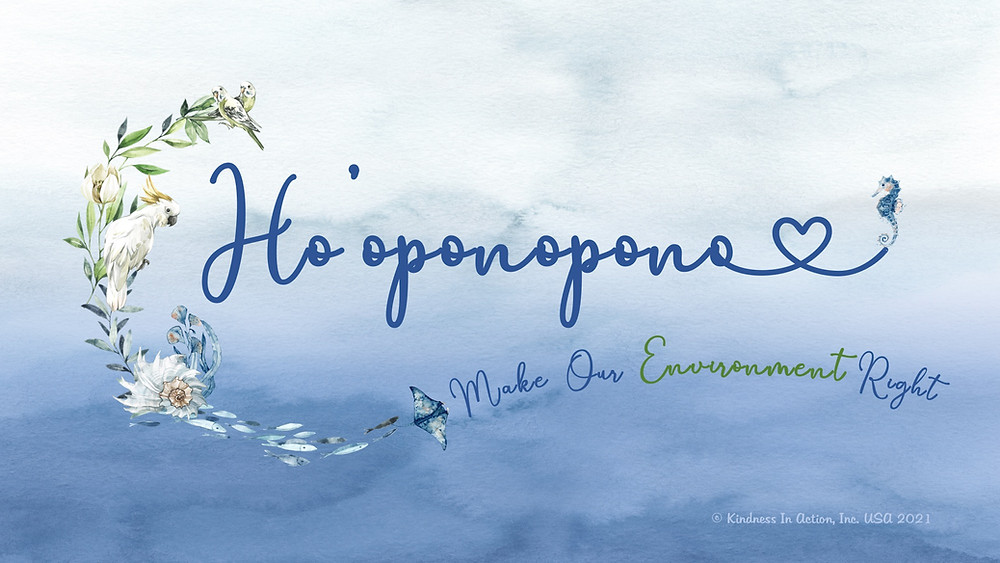 Ho'oponopono
Make Our Environment Right
© Kindness In Action, Inc. USA 2021